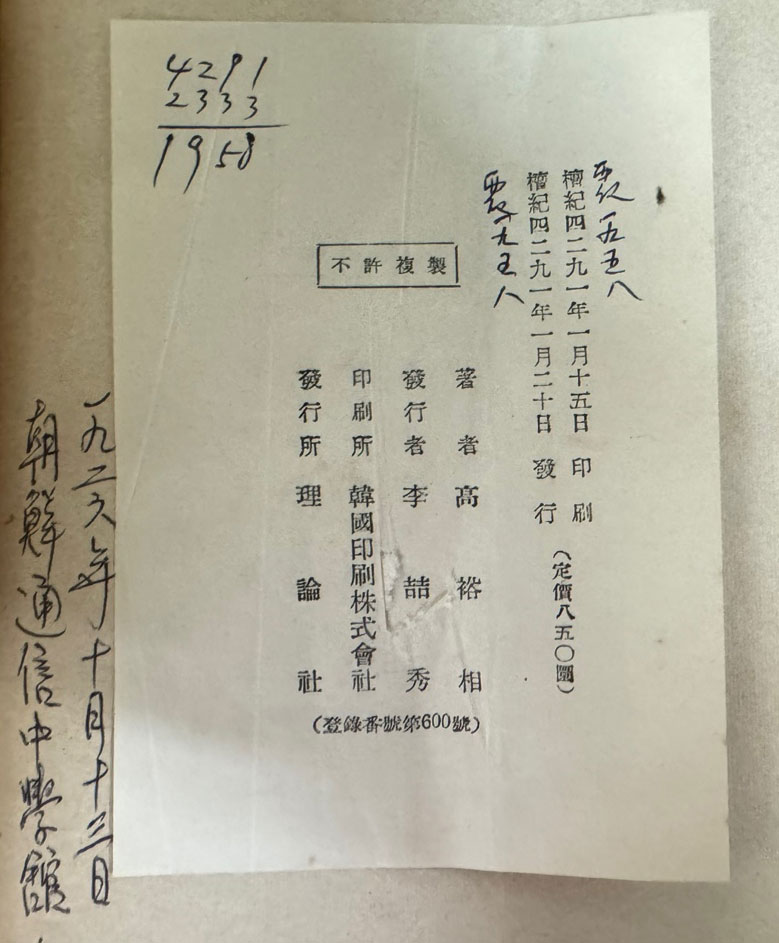 4291
2333
1958
西紀 一九五八
檀紀四二九一年一月十五日 印刷
檀紀四二九一年一月二十日 發行
西紀 一九五八
(定價八五〇圜)
不許複製
著者 高裕相
發行者 李喆秀
印刷所 韓國印刷株式會社
發行所 理論社
(登錄番號第600號)
一九二六年十月十三日
朝鮮通信中學館